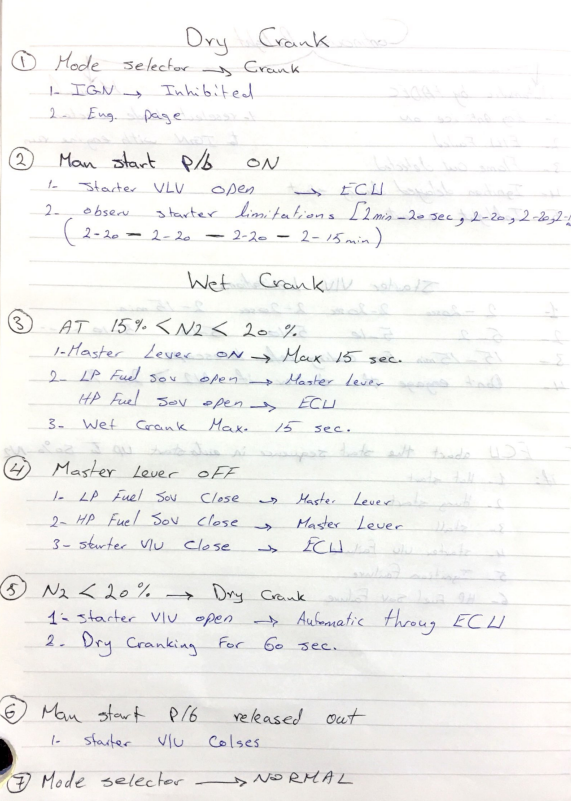 Dry Crank
① Mode selector → Crank
1- IGN → Inhibited
2- Eng. page
② Man start P/b ON
1- Starter VLV open → ECU
2- observ starter limitations [2min-20sec, 2-20, 2-20, 2-
(2-20 - 2-20 - 2-20 - 2-15min)
Wet Crank
③ AT 15% < N2 < 20%
1- Master Lever ON → Max 15 sec.
2- LP Fuel sov open → Master Lever
HP Fuel sov open → ECU
3- Wet Crank Max. 15 sec.
④ Master Lever OFF
1- LP Fuel Sov Close → Master Lever
2- HP Fuel Sov Close → Master Lever
3- starter V/V Close → ECU
⑤ N2 < 20% → Dry Crank
1- starter V/V open → Automatic throug ECU
2. Dry Cranking For 60 sec.
⑥ Man start P/b released out
1- starter V/V Colses
⑦ Mode selector → NORMAL